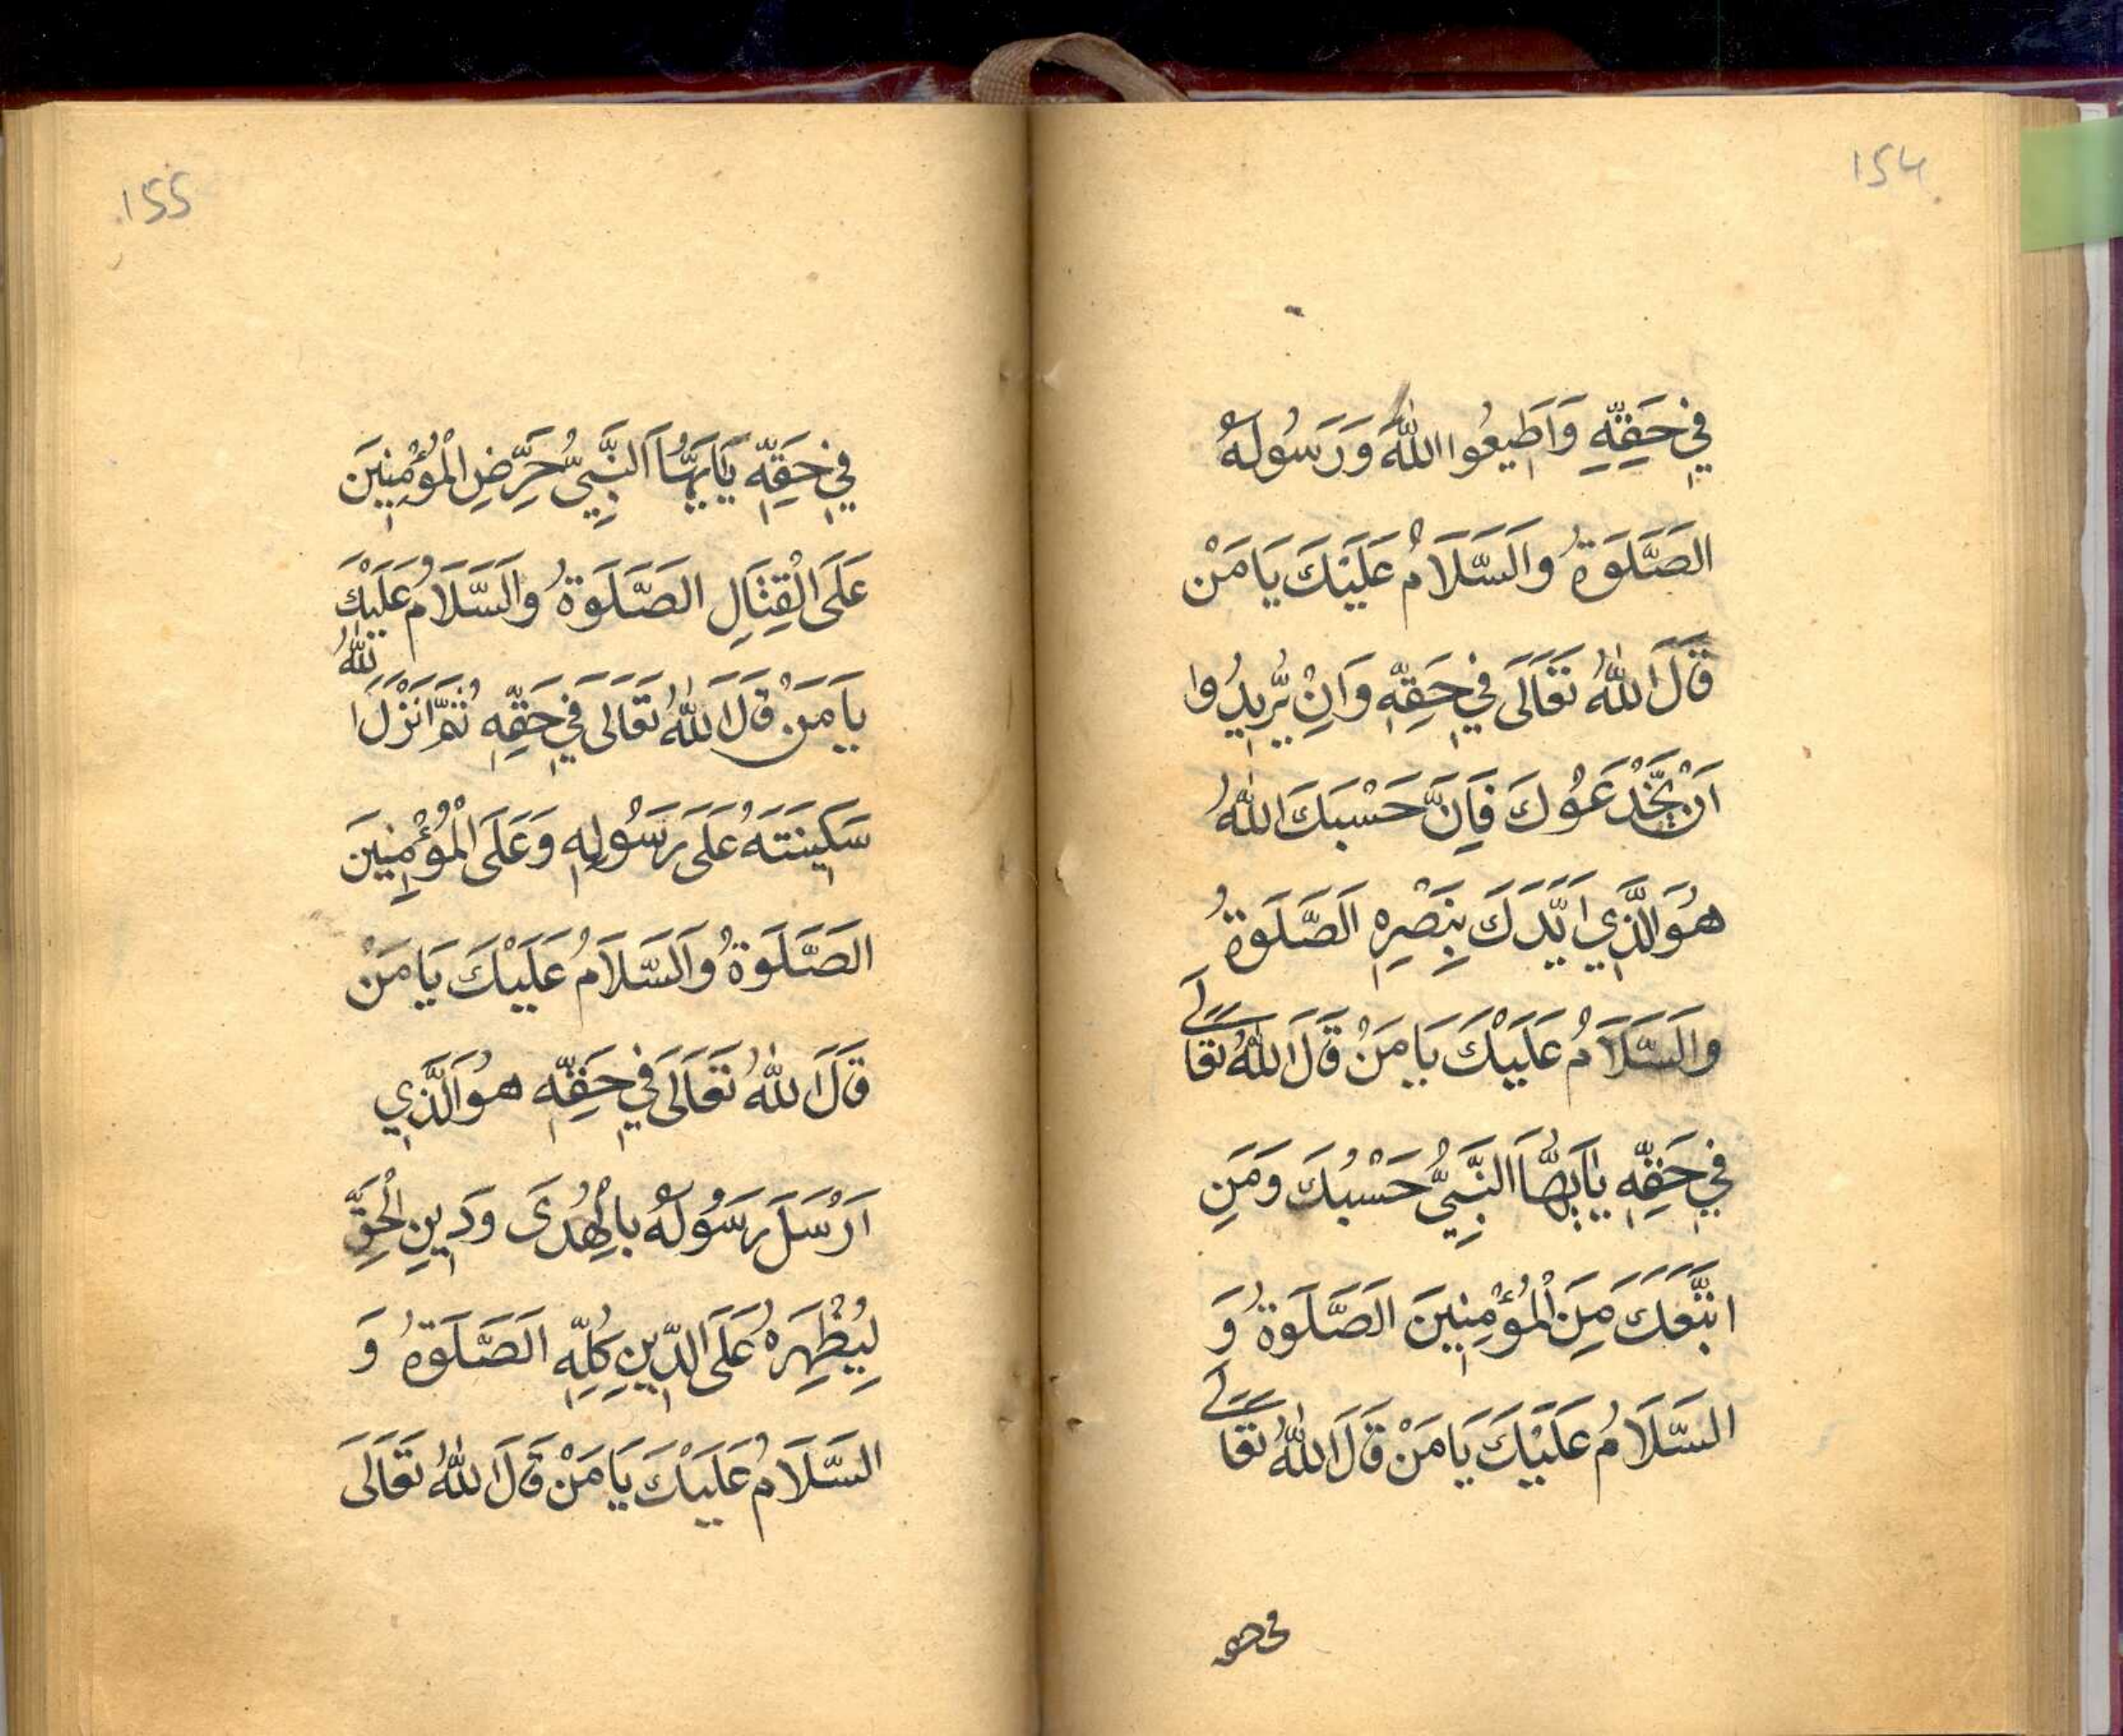 154
فِي حَقِّهِ وَاَطِيعُوا اللّٰهَ وَرَسُولَهُ
الصَّلَوةُ وَالسَّلَامُ عَلَيْكَ يَا مَنْ
قَالَ اللّٰهُ تَعَالَى فِي حَقِّهِ وَاِنْ يُرِيدُوا
اَنْ يَخْدَعُوكَ فَاِنَّ حَسْبَكَ اللّٰهُ
هُوَ الَّذِي اَيَّدَكَ بِنَصْرِهِ اَلصَّلَوةُ
وَالسَّلَامُ عَلَيْكَ يَا مَنْ قَالَ اللّٰهُ تَعَالَى
فِي حَقِّهِ يَا اَيُّهَا النَّبِيُّ حَسْبُكَ وَمَنِ
اتَّبَعَكَ مِنَ الْمُؤْمِنِينَ اَلصَّلَوةُ وَ
السَّلَامُ عَلَيْكَ يَا مَنْ قَالَ اللّٰهُ تَعَالَى
فى حقه
155
فِي حَقِّهِ يَا اَيُّهَا النَّبِيُّ حَرِّضِ الْمُؤْمِنِينَ
عَلَى الْقِتَالِ الصَّلَوةُ وَالسَّلَامُ عَلَيْكَ
يَا مَنْ قَالَ اللّٰهُ تَعَالَى فِي حَقِّهِ ثُمَّ اَنْزَلَ اللّٰهُ
سَكِينَتَهُ عَلَى رَسُولِهِ وَعَلَى الْمُؤْمِنِينَ
الصَّلَوةُ وَالسَّلَامُ عَلَيْكَ يَا مَنْ
قَالَ اللّٰهُ تَعَالَى فِي حَقِّهِ هُوَ الَّذِي
اَرْسَلَ رَسُولَهُ بِالْهُدَى وَدِينِ الْحَقِّ
لِيُظْهِرَهُ عَلَى الدِّينِ كُلِّهِ اَلصَّلَوةُ وَ
السَّلَامُ عَلَيْكَ يَا مَنْ قَالَ اللّٰهُ تَعَالَى